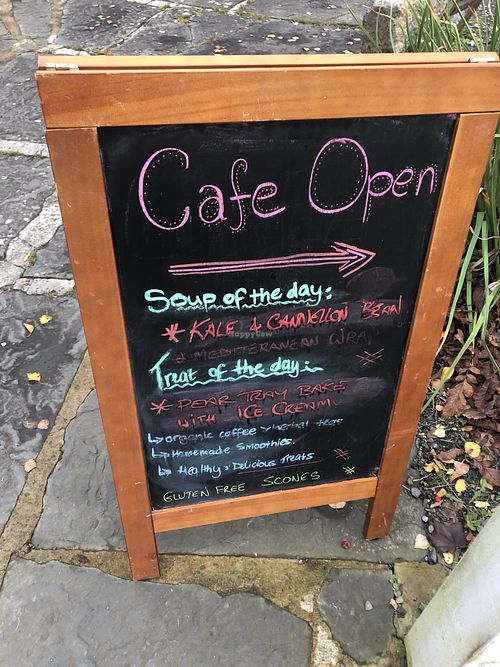 Cafe Open
Soup of the day:
* KALE & CANNELLON BEAN
& MEDITERANEAN WRAP
Treat of the day:
* PEAR TRAY BAKE
WITH ICE CREAM
↳ organic coffee > herbal teas
↳ Homemade Smoothies.
↳ Healthy & Delicious Treats
GLUTEN FREE SCONES
HappyCow